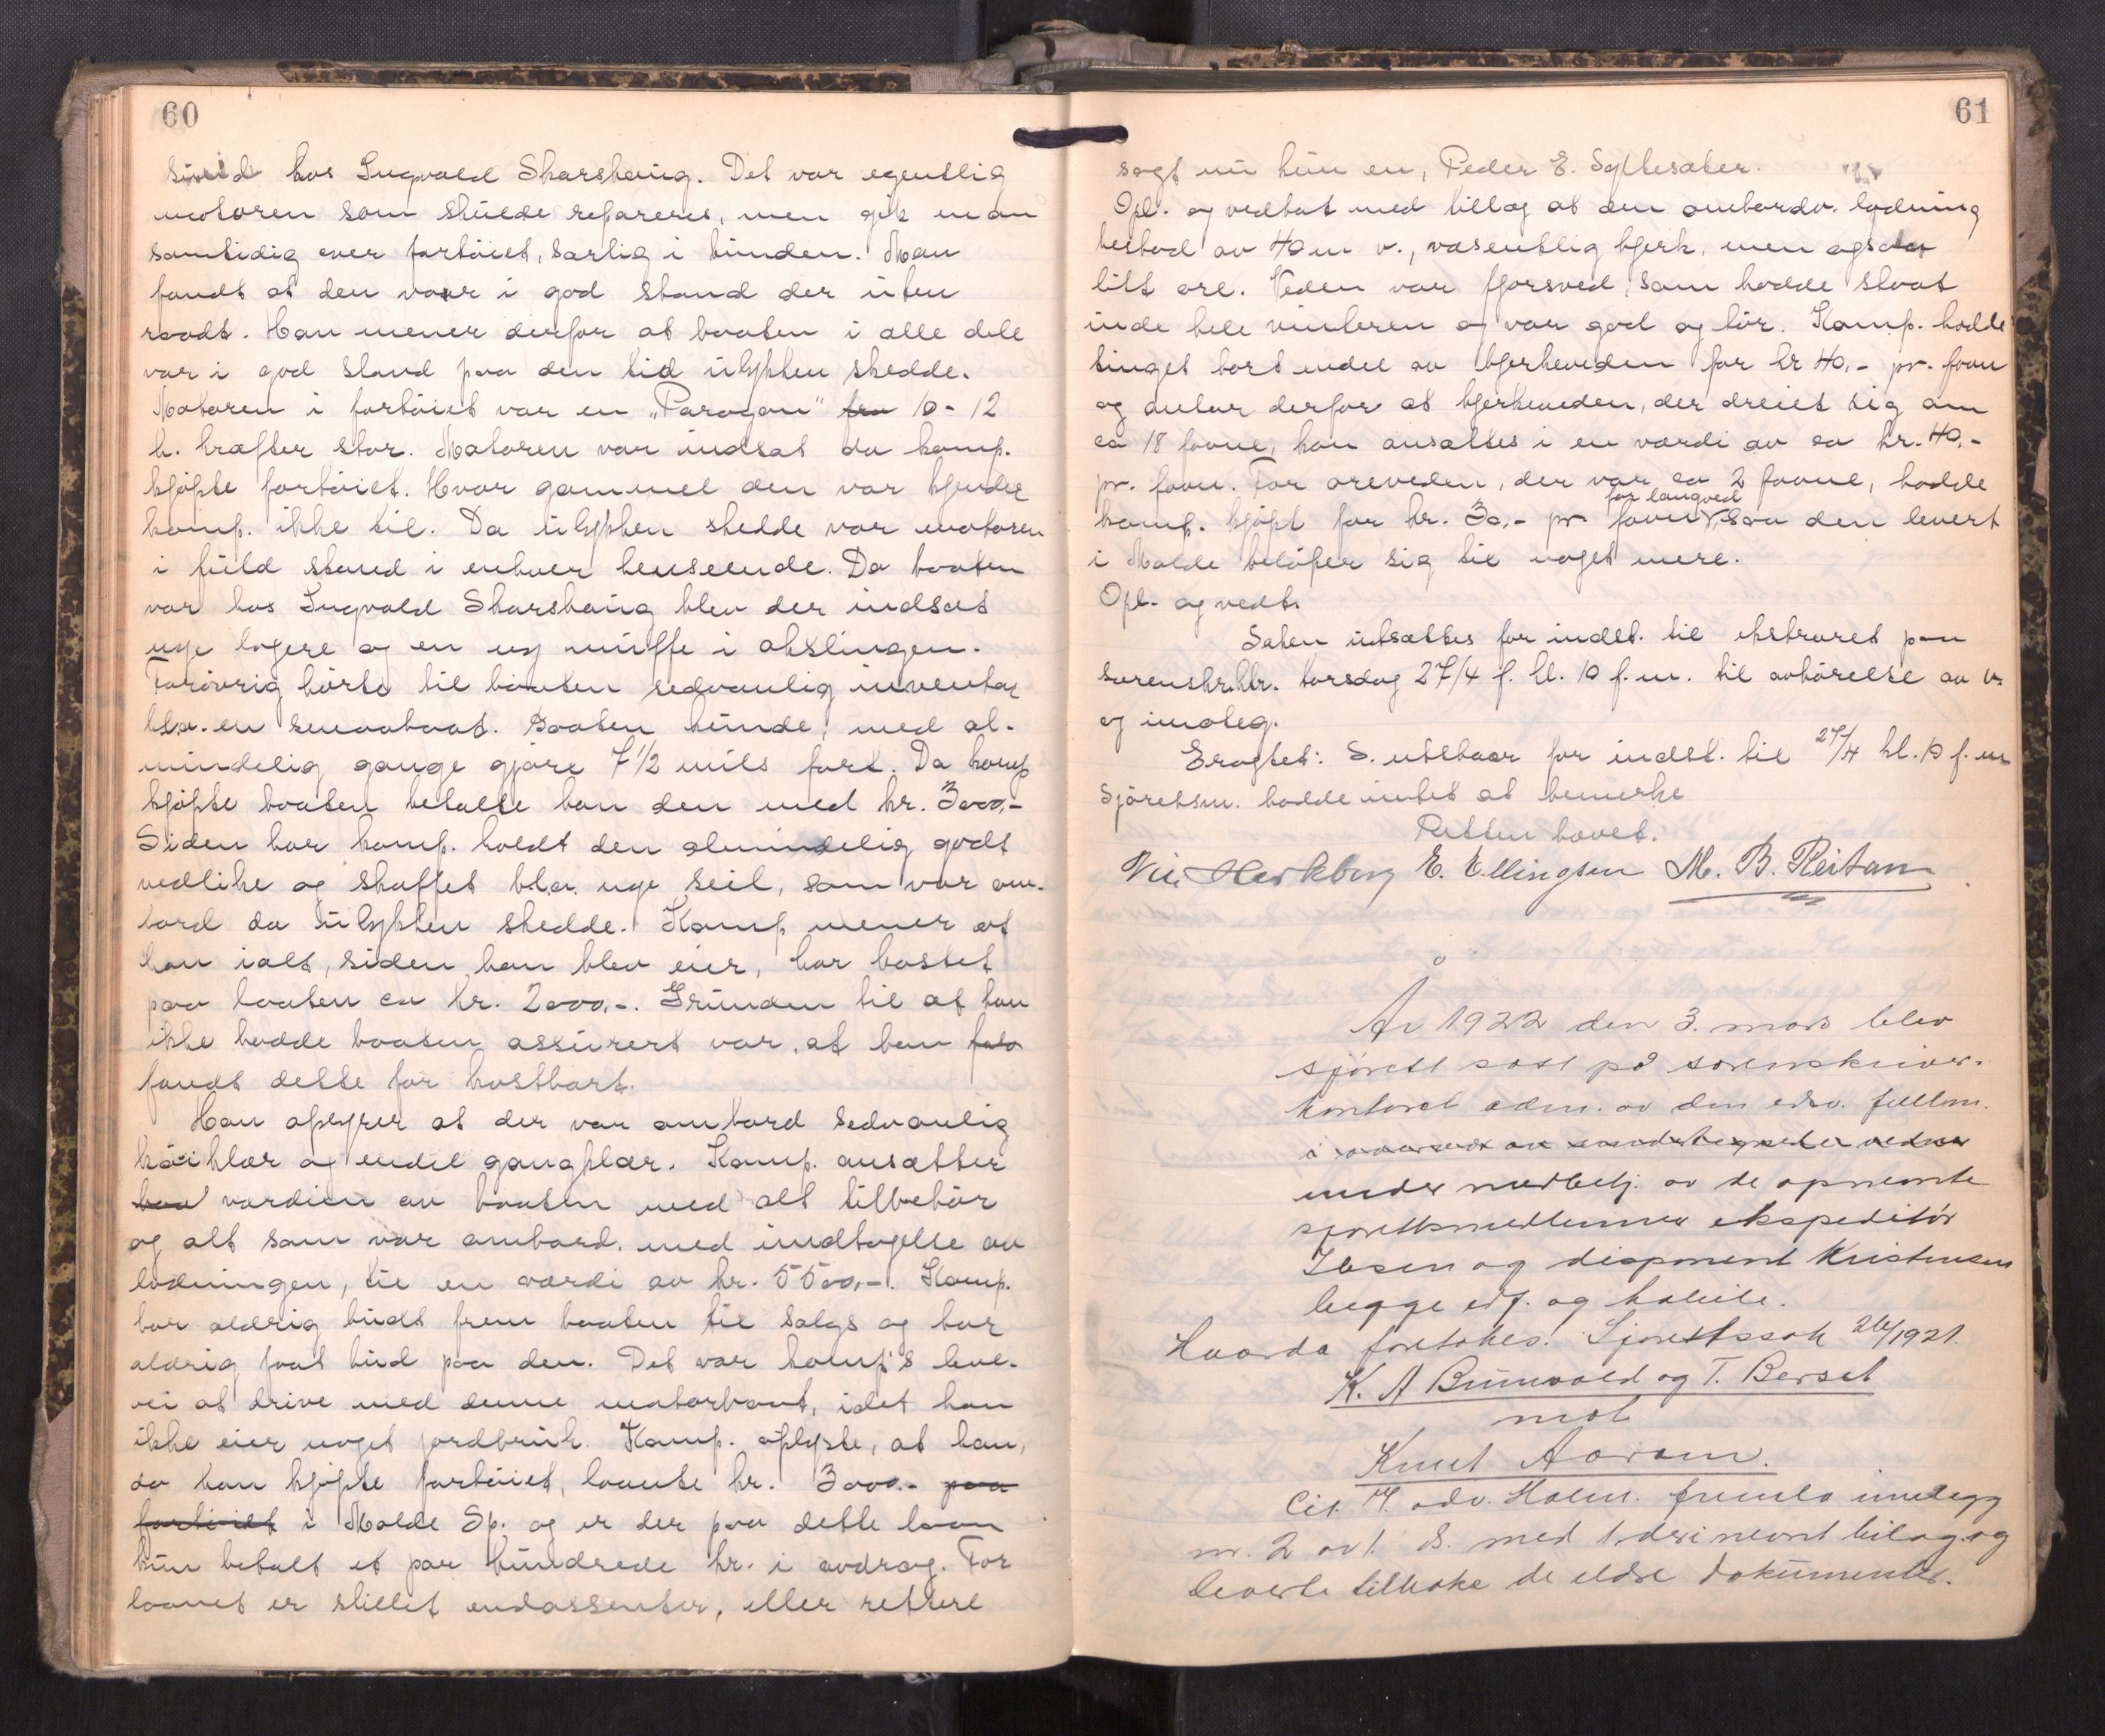 60
hos Ingvald Skarshaug. Det var egentlig
motoren som skulde repareres, men gik man
samtidig over fartöiet, særlig i bunden. Man
fandt at den vaar i god stand der uten
raadt. Han mener derfor at baaten i alle dele
var i god stand paa den tid ulykken skedde.
Motoren i fartöiet var en "Paragon" fra 10-12
h. kræfter stor. Motoren var indsat da komp.
kjöpte fartöiet. Hvor gammel den var kjender
komp. ikke til. Da ulykken skedde var motoren
i fuld stand i enhver henseende. Da baaten
var hos Ingvald Skarshaug blev der indsat
nye lagere og en ny muffe i akslingen.
Forövrig hörte til baaten sedvanlig inventar
bl.a. en smaabaat. Baaten kunde, med al-
mindelig gange gjöre 7 1/2 mils fart. Da komp
kjöpte baaten betalte han den med kr. 3000,-
Siden har komp. holdt den almindelig godt
vedlike og skaffet bl.a. nye seil, som var om-
bord da ulykken skedde. Komp. mener at
han ialt, siden han blev eier, har kostet
paa baaten ca kr. 2000,-. Grunden til at han
ikke hadde baaten assurert var, at han
fandt dette for kostbart.
Han oplyser at der var ombord sedvanlig
köiklær og endel gangklær. Komp. ansætter
værdien av baaten med alt tilbehör
og alt som var ombord, med undtagelse av
ladningen, til en værdi av kr. 5500,-. Komp.
har aldrig budt frem baaten til salgs og har
aldrig faat bud paa den. Det var komp's leve-
vei at drive med denne motorbaat, idet han
ikke eier noget jordbruk. Komp. oplyste, at han,
da han kjöpte fartöiet, laante kr. 3000.- paa
fartöiet i Molde Sp. og er der paa dette laan
kun betalt et par hundrede kr. i avdrag. For
laanet er stillet endossenter, eller rettere
61
sagt nu kun en, Peder E. Syltesæter.
Opl. og vedtat med tillæg at den ombordv. ladning
bestod av 40 m v., væsentlig bjerk, men ogsaa
litt ore. Veden var fjorsved, som hadde staat
inde hele vinteren og var god og tör. Komp. hadde
tinget bort endel av bjerkeveden for kr 40,- pr. favn
og antar derfor at bjerkeveden, der dreiet sig om
ca 18 favne, kan ansættes i en værdi av ca kr. 40,-
pr. favn. For oreveden, der var ca 2 favne, hadde
komp. kjöpt for kr. 30,- pr favn for langved saa den levert
i Molde belöper sig til noget mere.
Opl. og vedt.
Saken utsættes for indst. til ekstraret paa
sorenskr.ktr. torsdag 27/4 f. kl. 10 f.m. til avhörelse av v.
og imöteg.
Eragtet: S. utstaar for indst. til 27/4 kl. 10 f.m
Sjöretsm. hadde intet at bemerke
Retten hævet.
E. Ellingsen M. B. Reitan
År 1922 den 3. mars blev
sjörett satt på sorenskriver-
kontoret adm. av den edsv. fullm.
under medbetj. av de opnevnte
sjörettsmedlemmer ekspeditör
Ibsen og disponent Kristensen
begge edf. og habile.
Hvorda foretokes: Sjörettssak 26/1921.
K. A Brunvold og T. Berset
mot
Knut Aarøen.
Cit. H. adv. Holm. fremla innlegg
nr. 2 av d. med 1 deri nevnt bilag og
leverte tilbake de eldre dokumenter.